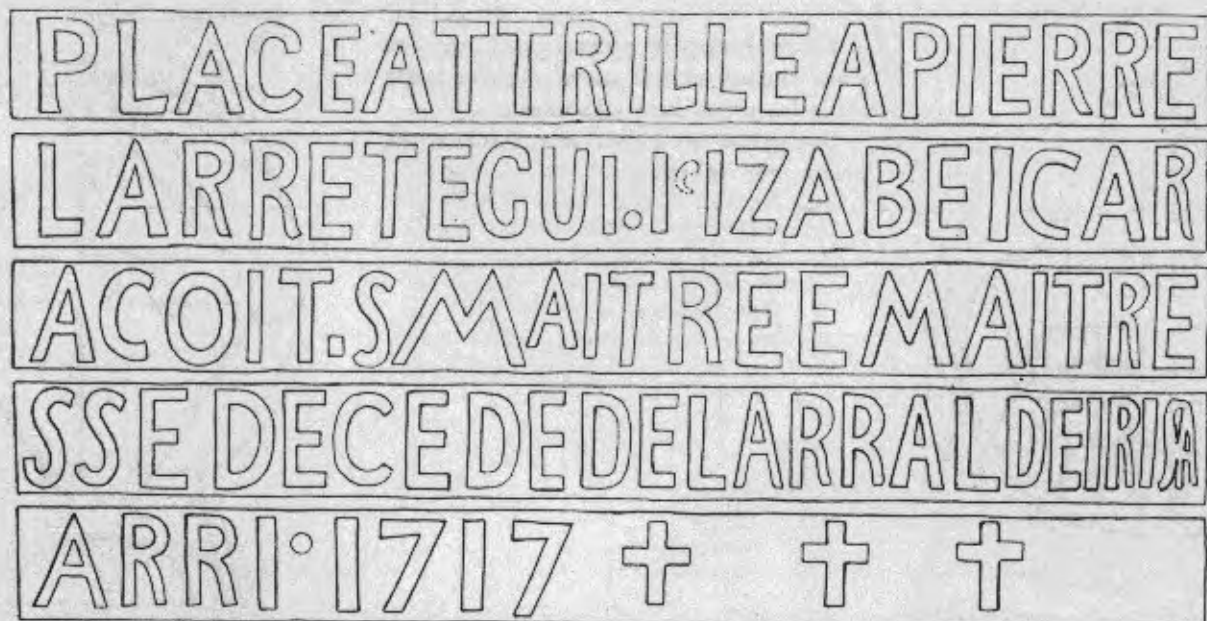 PLACEATTRILLEAPIERRE
LARRETEGUI.I IZABEICAR
ACOIT.SMAITREEMAITRE
SSEDECEDEDELARRALDEIRI
ARRI·1717 + + +